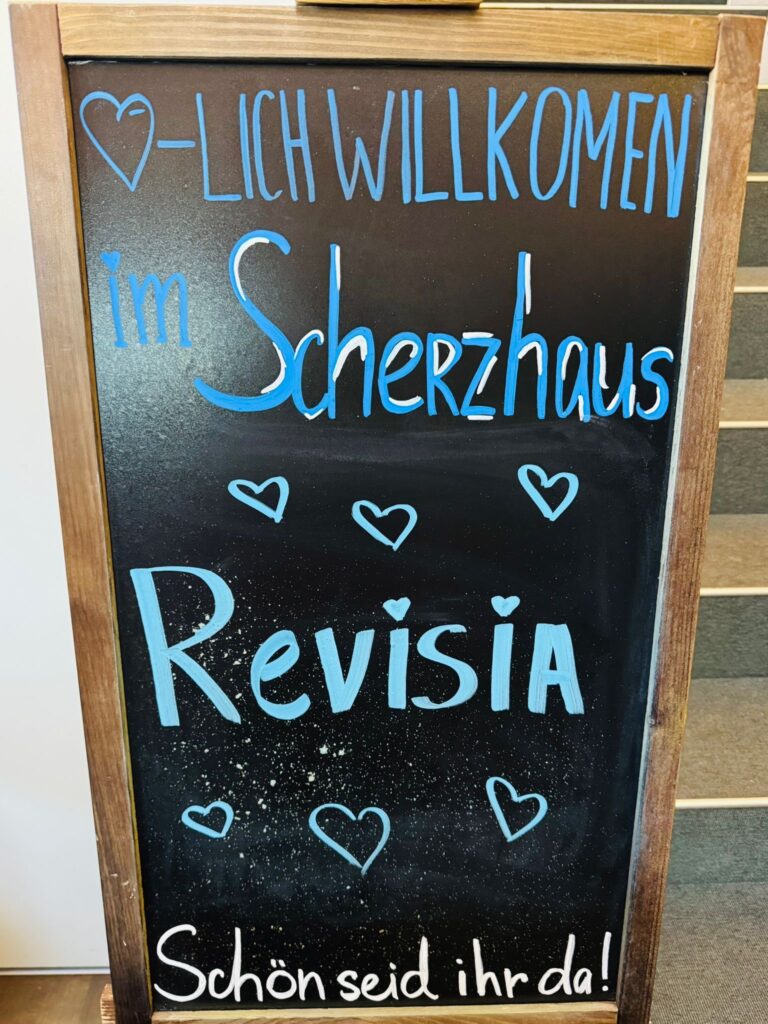 ♡-LICH WILLKOMEN
im Scherzhaus
Revisia
Schön seid ihr da!